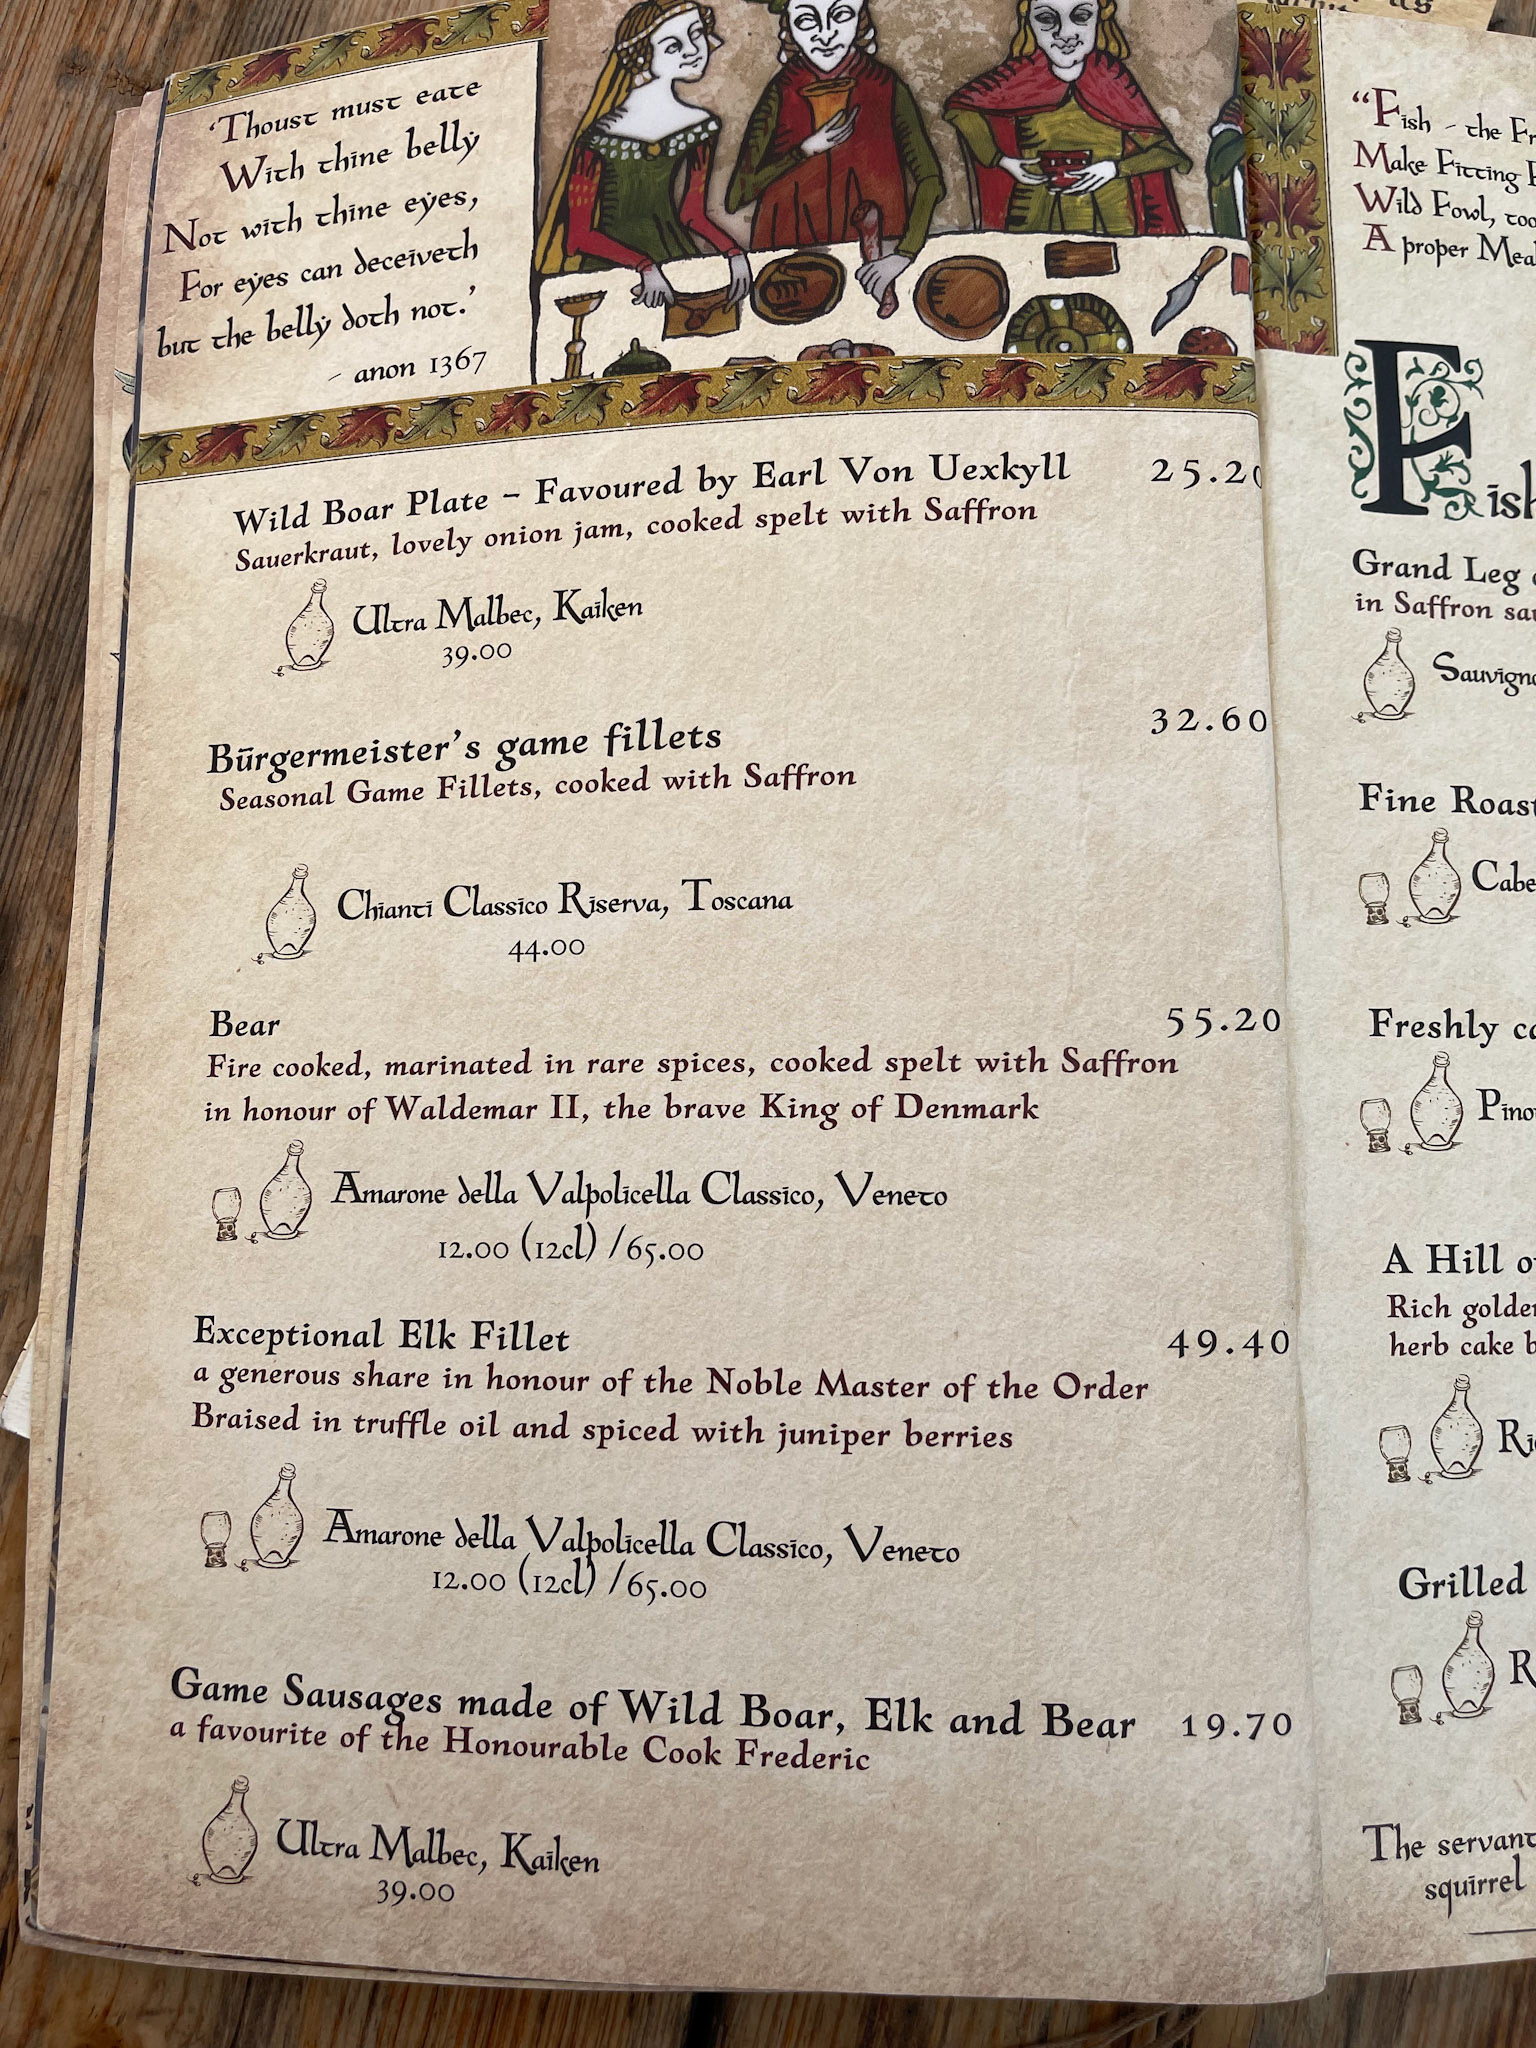 'Thoust must eate
With thine belly
Not with thine eyes,
For eyes can deceiveth
but the belly doth not.'
- anon 1367
Wild Boar Plate - Favoured by Earl Von Uexkyll 25.20
Sauerkraut, lovely onion jam, cooked spelt with Saffron
Ultra Malbec, Kaiken
39.00
Bürgermeister's game fillets 32.60
Seasonal Game Fillets, cooked with Saffron
Chianti Classico Riserva, Toscana
44.00
Bear 55.20
Fire cooked, marinated in rare spices, cooked spelt with Saffron
in honour of Waldemar II, the brave King of Denmark
Amarone della Valpolicella Classico, Veneto
12.00 (12cl) /65.00
Exceptional Elk Fillet 49.40
a generous share in honour of the Noble Master of the Order
Braised in truffle oil and spiced with juniper berries
Amarone della Valpolicella Classico, Veneto
12.00 (12cl) /65.00
Game Sausages made of Wild Boar, Elk and Bear 19.70
a favourite of the Honourable Cook Frederic
Ultra Malbec, Kaiken
39.00
"Fish - the
Make Fitting
Wild Fowl, too
A proper
Fish
Grand Leg
in Saffron
Fine Roast
Freshly
A Hill
Rich golden
herb cake
Grilled
The servant
squirrel